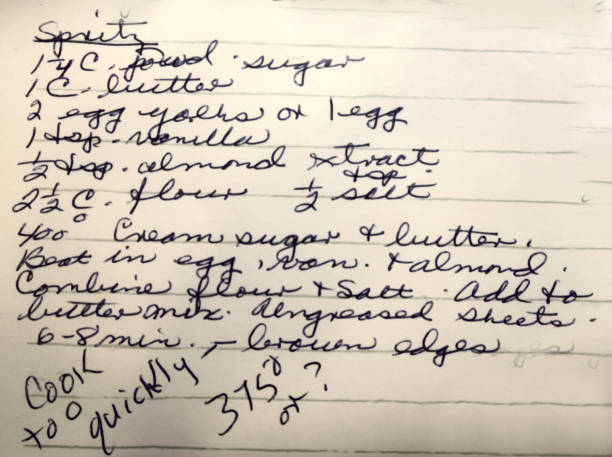 Spritz
1 1/4 C. powd. sugar
1 C. butter
2 egg yolks or 1 egg
1 tsp. vanilla
1/2 tsp. almond extract
2 1/2 C. flour 1/2 tsp. salt
400° Cream sugar + butter.
Beat in egg, van. + almond.
Combine flour + salt. Add to
butter mix. Ungreased sheets.
6-8 min. - brown edges
Cook
too quickly
375° or ?